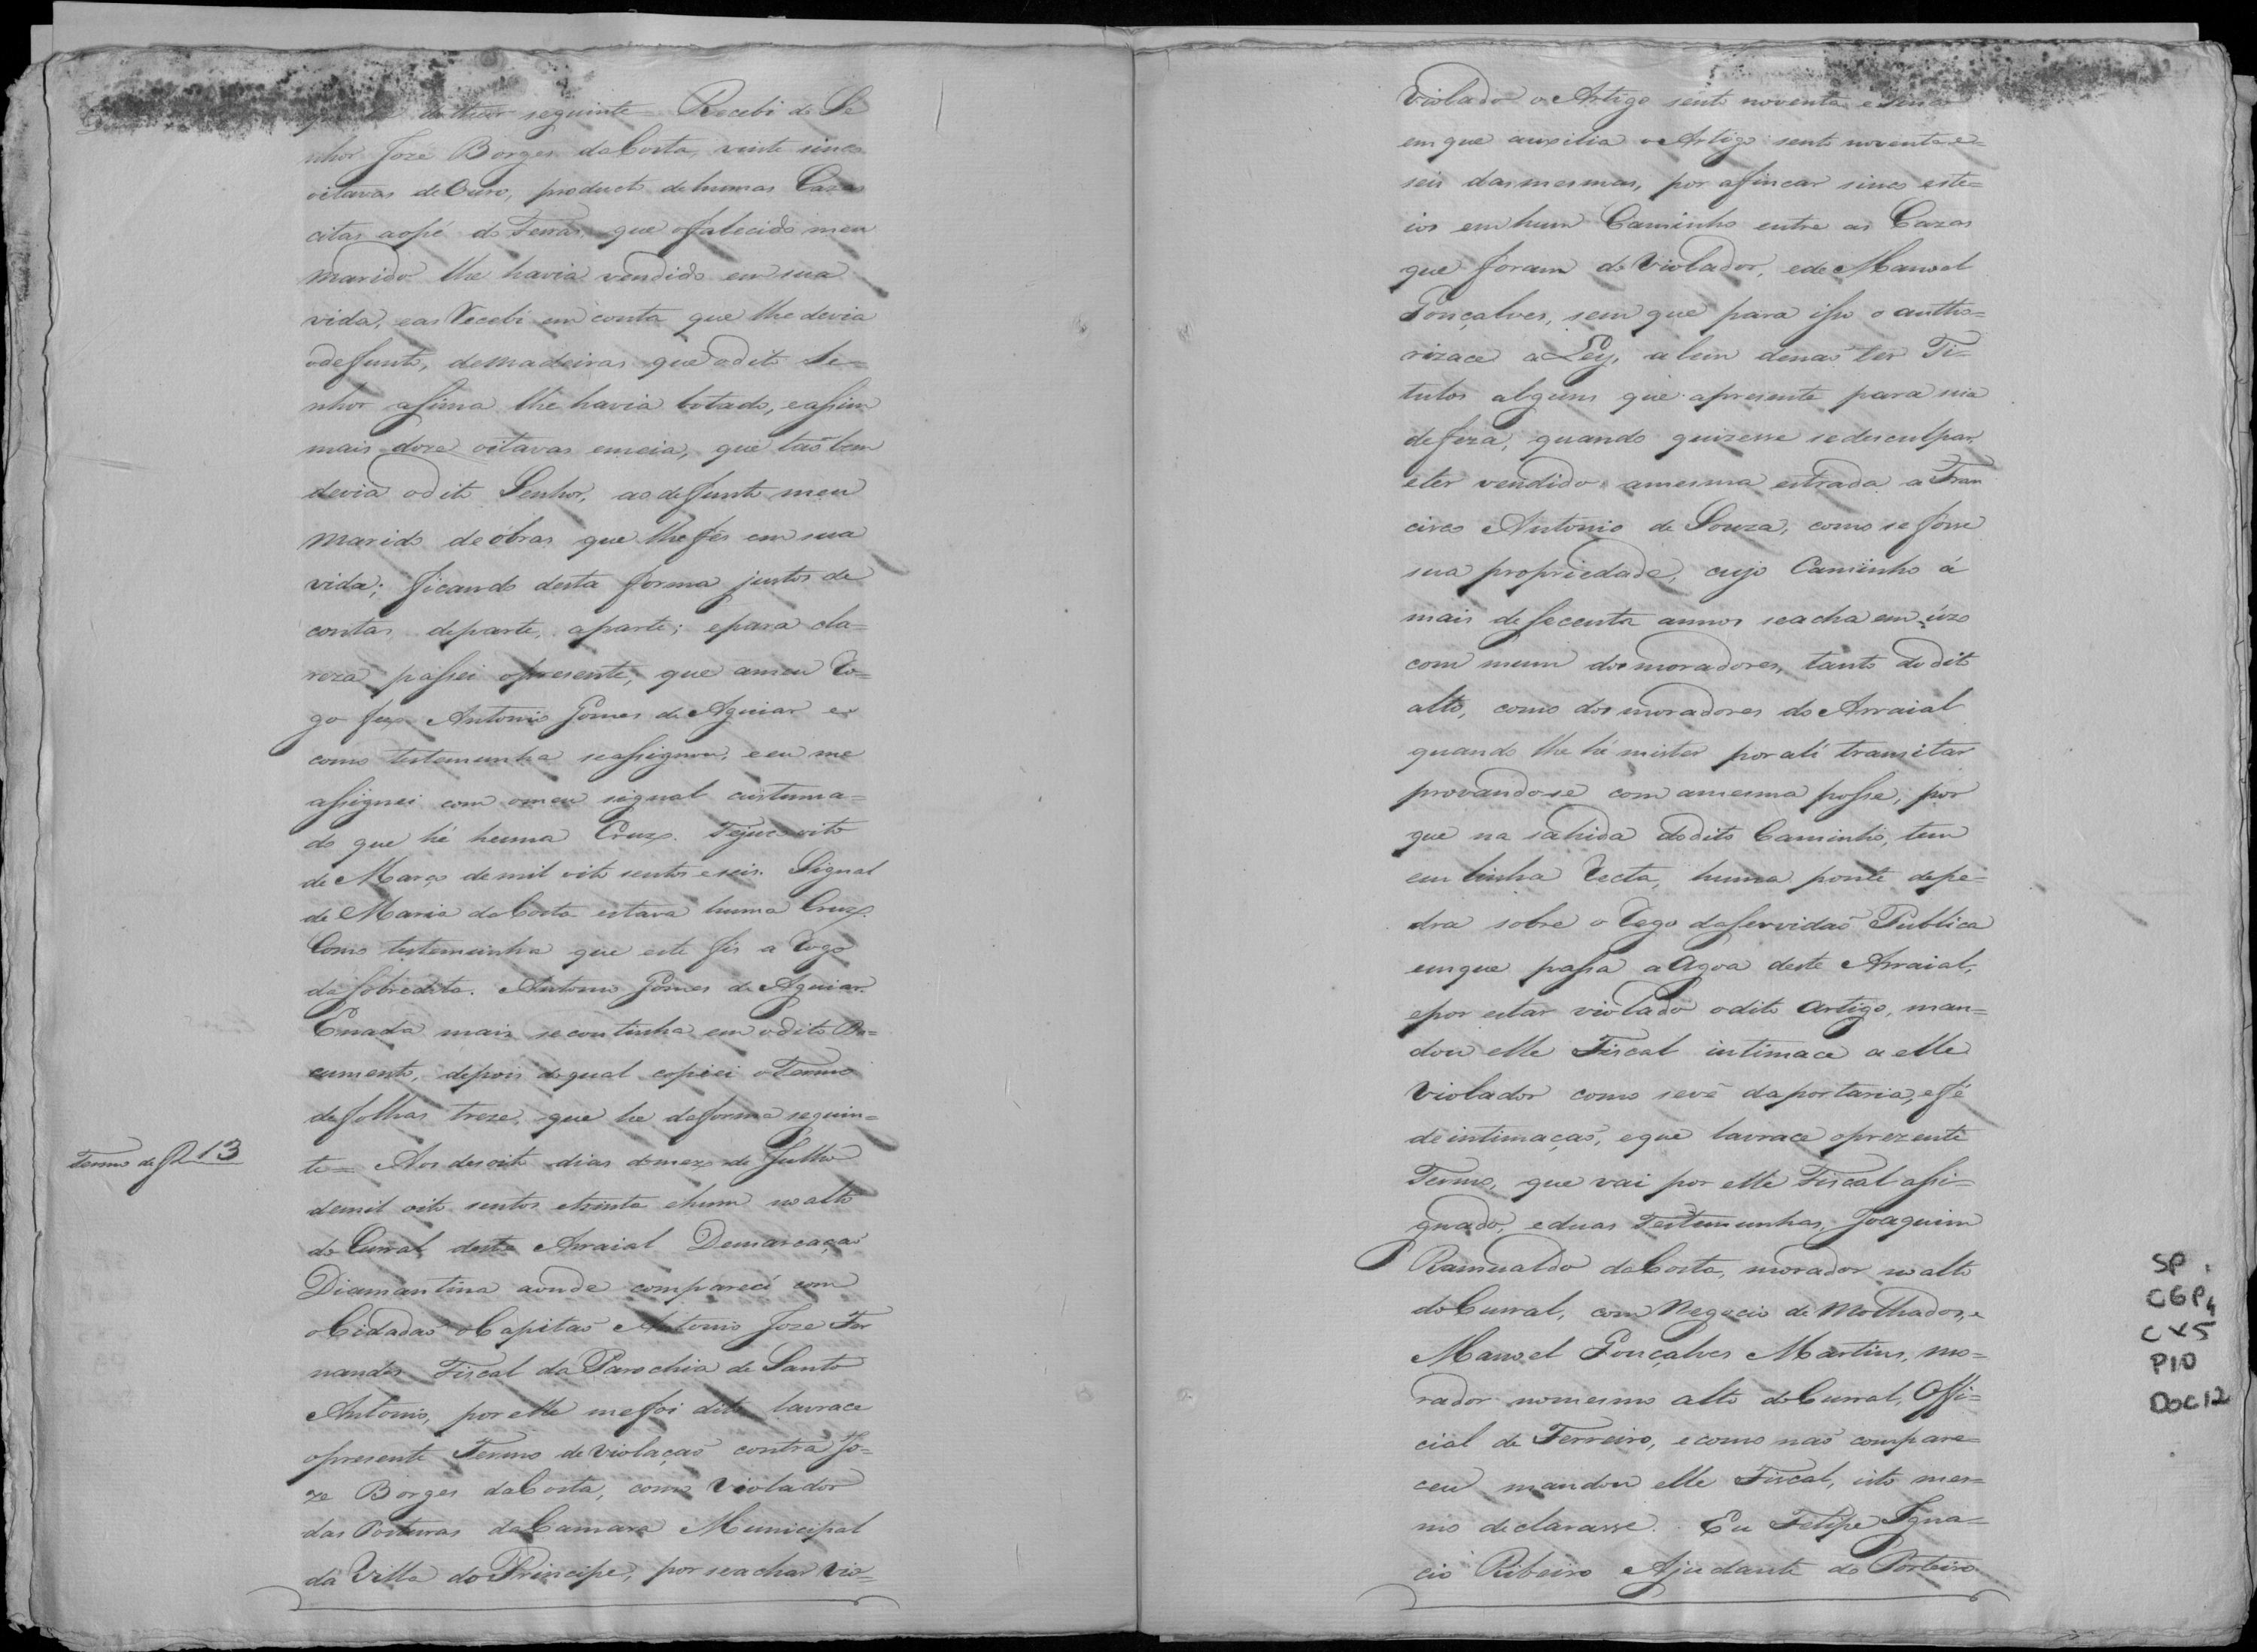 do theor seguinte = Recebi do Se
nhor Joze Borges da Costa, vinte sinco
oitavas de Ouro, producto de humas Cazas
citas aopé do Ferrás, que ofalecido meu
marido lhe havia vendido em sua
vida, eas Recebi em conta que lhe devia
odefunto, de madeiras que odito Se=
nhor assima lhe havia botado, eassim
mais doze oitavas emeia, que taõ bem
devia odito Senhor, ao defunto meu
marido de óbras que lhe fes em sua
vida; ficando desta forma justos de
contas departe, aparte; epara cla=
reza passei opresente, que ameu Ro=
go fez Antonio Gomes de Aguiar e
como testemunha seassignou, eeu me
assignei com omeu signal custuma=
do que hé huma Cruz. Tejuco oito
de Março de mil oito sentos eseis. Signal
de Maria da Costa estava huma Cruz.
Como testemunha que este fis a Rogo
da sobredita. Antonio Gomes de Aguiar.
Enada mais se continha em odito Do=
cumento, depois do qual copiei o Termo
de folhas treze, que he da forma seguin=
Termo de f 13
te = Aos desoito dias domez de Julho
demil oito sentos etrinta ehum no alto
do Curral deste Arraial Demarcaçaõ
Diamantina aonde compareci com
oCidadaõ oCapitaõ Antonio Joze Fer
nandes Fiscal da Parochia de Santo
Antonio, por elle mefoi dito lavrace
opresente Termo de violaçaõ contra Jo=
ze Borges daCosta, como Violador
das Posturas daCamara Municipal
da Villa do Principe, por seachar vio=
Violado o Artigo sento noventa esinco
em que auxilia o Artigo sento noventa e=
seis das mesmas, por afincar sinco este=
ios em hum Caminho entre as Cazas
que foram do Violador, ede Manoel
Gonçalves, sem que para isso o autho=
rizace a Ley, alem denaõ ter Ti=
tulos alguns que apresente para sua
defeza, quando quizesse sedesculpar,
eter vendido amesma estrada a Fran
cisco Antonio de Souza, como se fosse
sua propriedade, cujo Caminho á
mais de secenta annos seacha em úzo
com mum dos moradores, tanto do dito
alto, como dos moradores do Arraial
quando lhe hé mister por ali transitar
provando-se com amesma posse, por
que na sahida dodito Caminho, tem
em linha Recta, huma ponte depe=
dra sobre o Rego daservidaõ Publica
emque passa a Agoa deste Arraial,
epor estar violado odito Artigo, man=
dou elle Fiscal intimace a elle
Violador como sevê daportaria, efé
deintimaçaõ, eque lavrace oprezente
Termo, que vai por elle Fiscal assi=
gnado, eduas Testemunhas, Joaquim
Ramualdo daCosta, morador no alto
doCurral, com Negocio de Molhados, e
Manoel Gonçalves Martins, mo=
rador nomesmo alto doCurral, Offi=
cial de Ferreiro, ecomo naõ compare=
ceu mandou elle Fiscal, isto mes=
mo declarasse. Eu Felipe Igna=
cio Ribeiro Ajudante do Porteiro
SP
CGP4
CX5
P10
Doc12